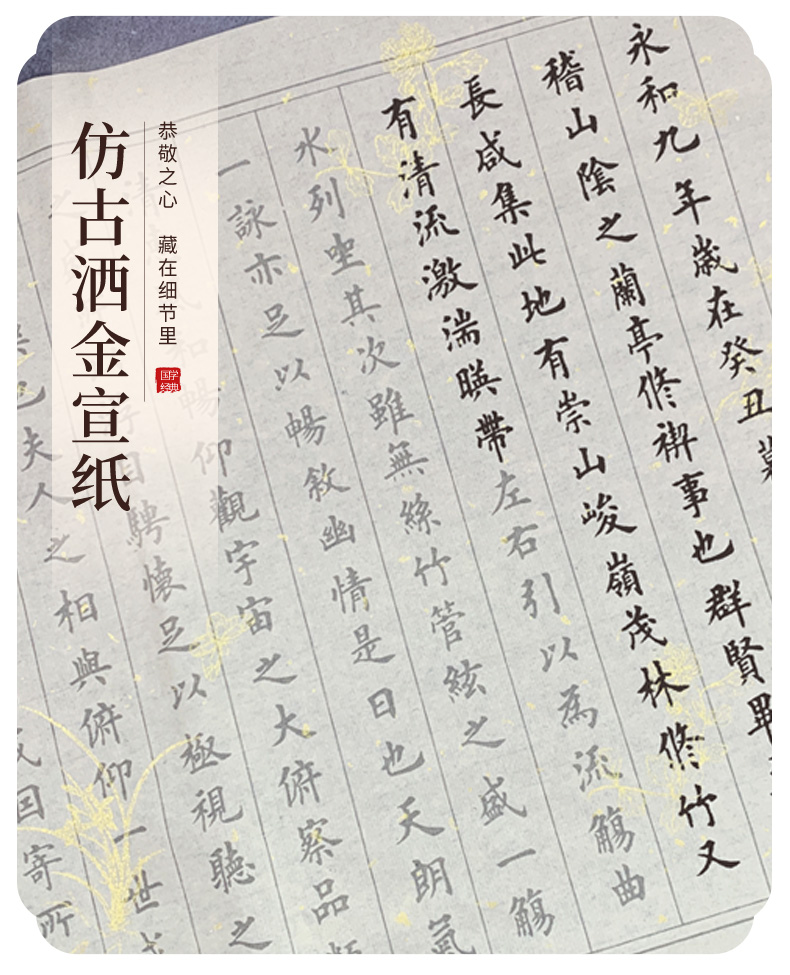 仿古洒金宣纸
恭敬之心 藏在细节里
国学经典
永和九年歲在癸丑
稽山陰之蘭亭修禊事也群賢畢
長咸集此地有崇山峻嶺茂林修竹又
有清流激湍暎帶左右引以為流觴曲
水列坐其次雖無絲竹管絃之盛一觴
一詠亦足以暢敘幽情是日也天朗氣
和暢仰觀宇宙之大俯察品類
目騁懷足以極視聽之
也夫人之相與俯仰一世
因寄所